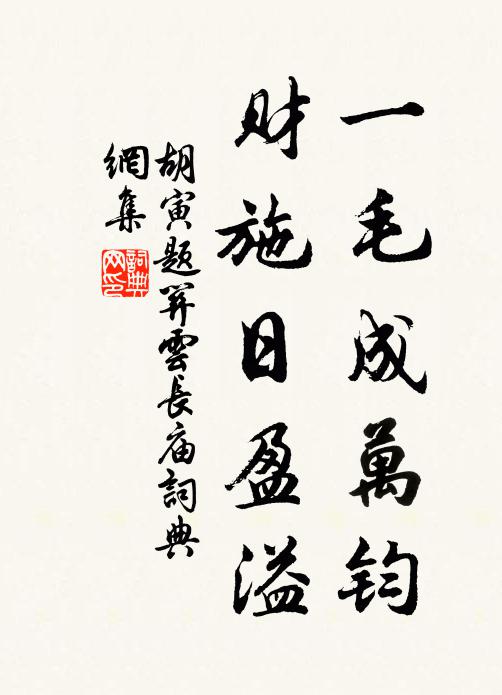 一毛成萬鈞
財施日盈溢
胡寅题関雲長庙詞典
網集
詞典網印